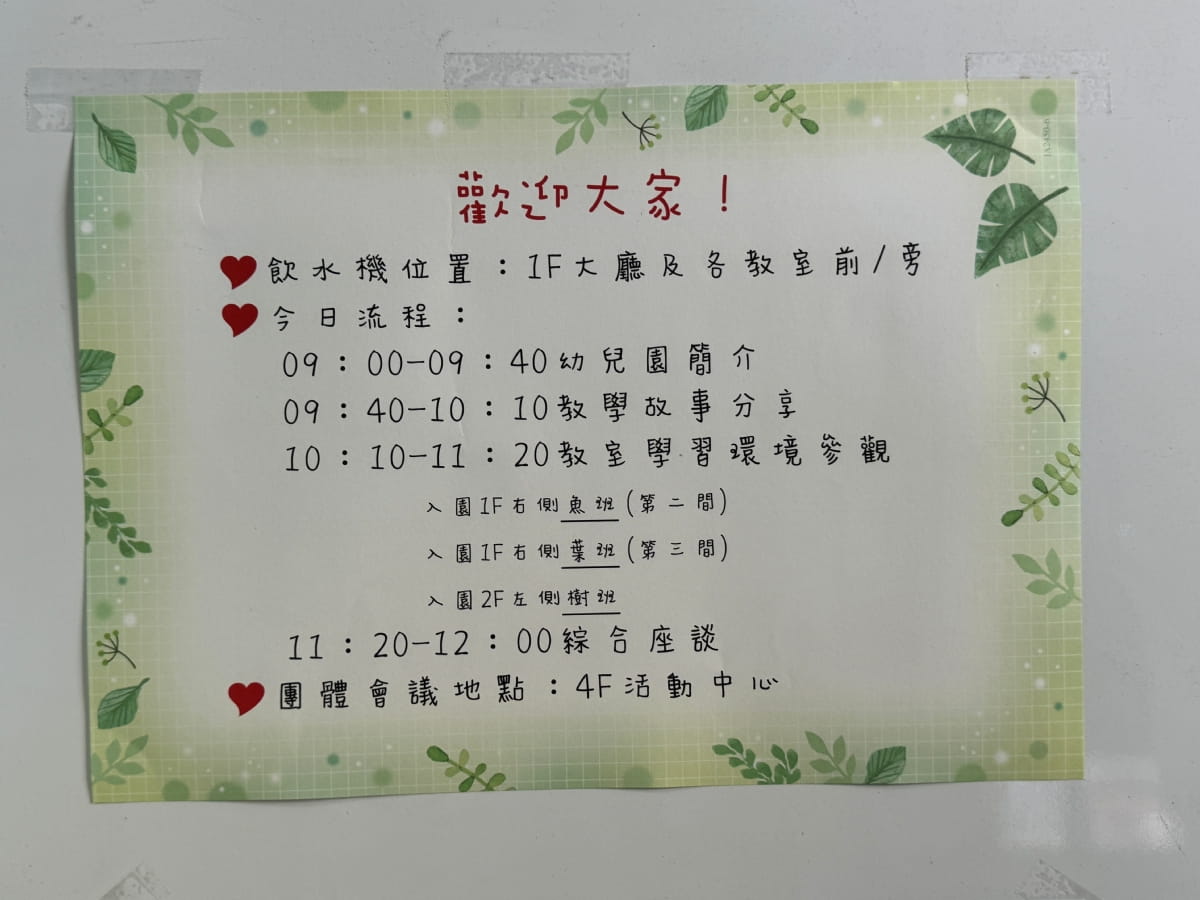 歡迎大家！
飲水機位置：1F大廳及各教室前/旁
今日流程：
09：00-09：40幼兒園簡介
09：40-10：10教學故事分享
10：10-11：20教室學習環境參觀
入園1F右側魚班(第二間)
入園1F右側葉班(第三間)
入園2F左側樹班
11：20-12：00綜合座談
團體會議地點：4F活動中心